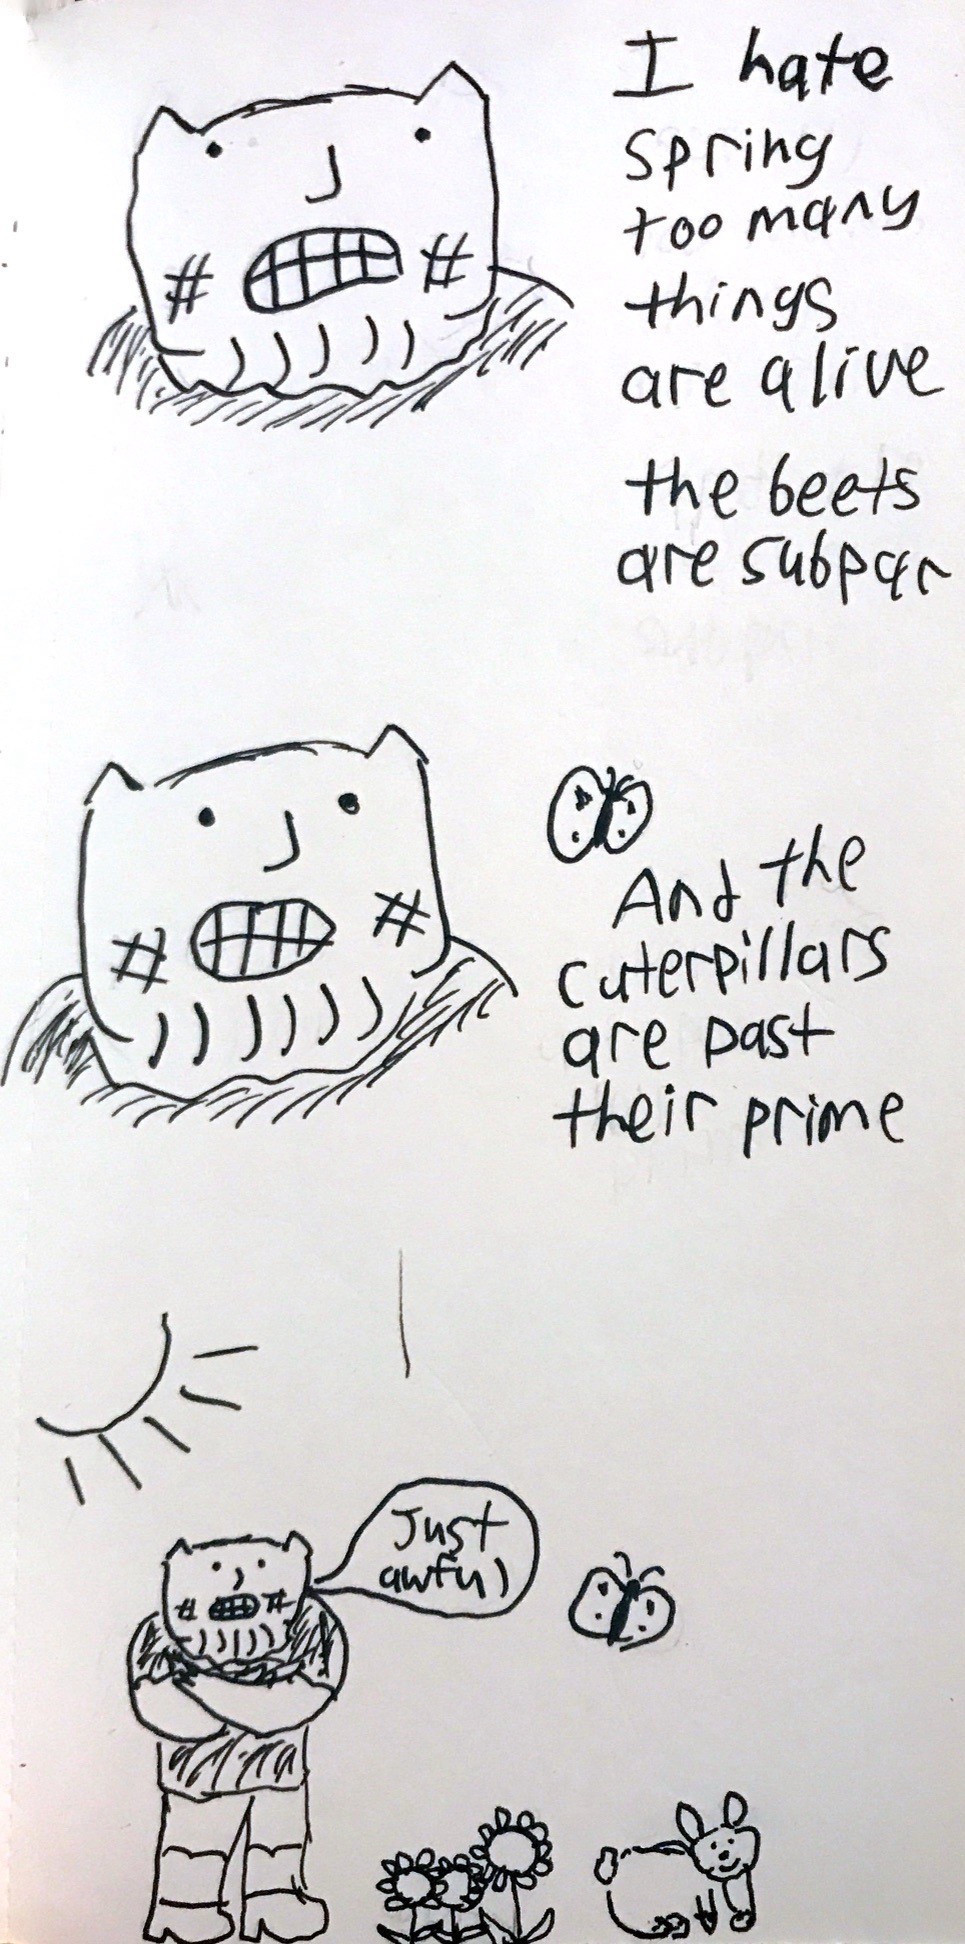 I hate
spring
too many
things
are alive
the beets
are subpar
And the
caterpillars
are past
their prime
Just
awful